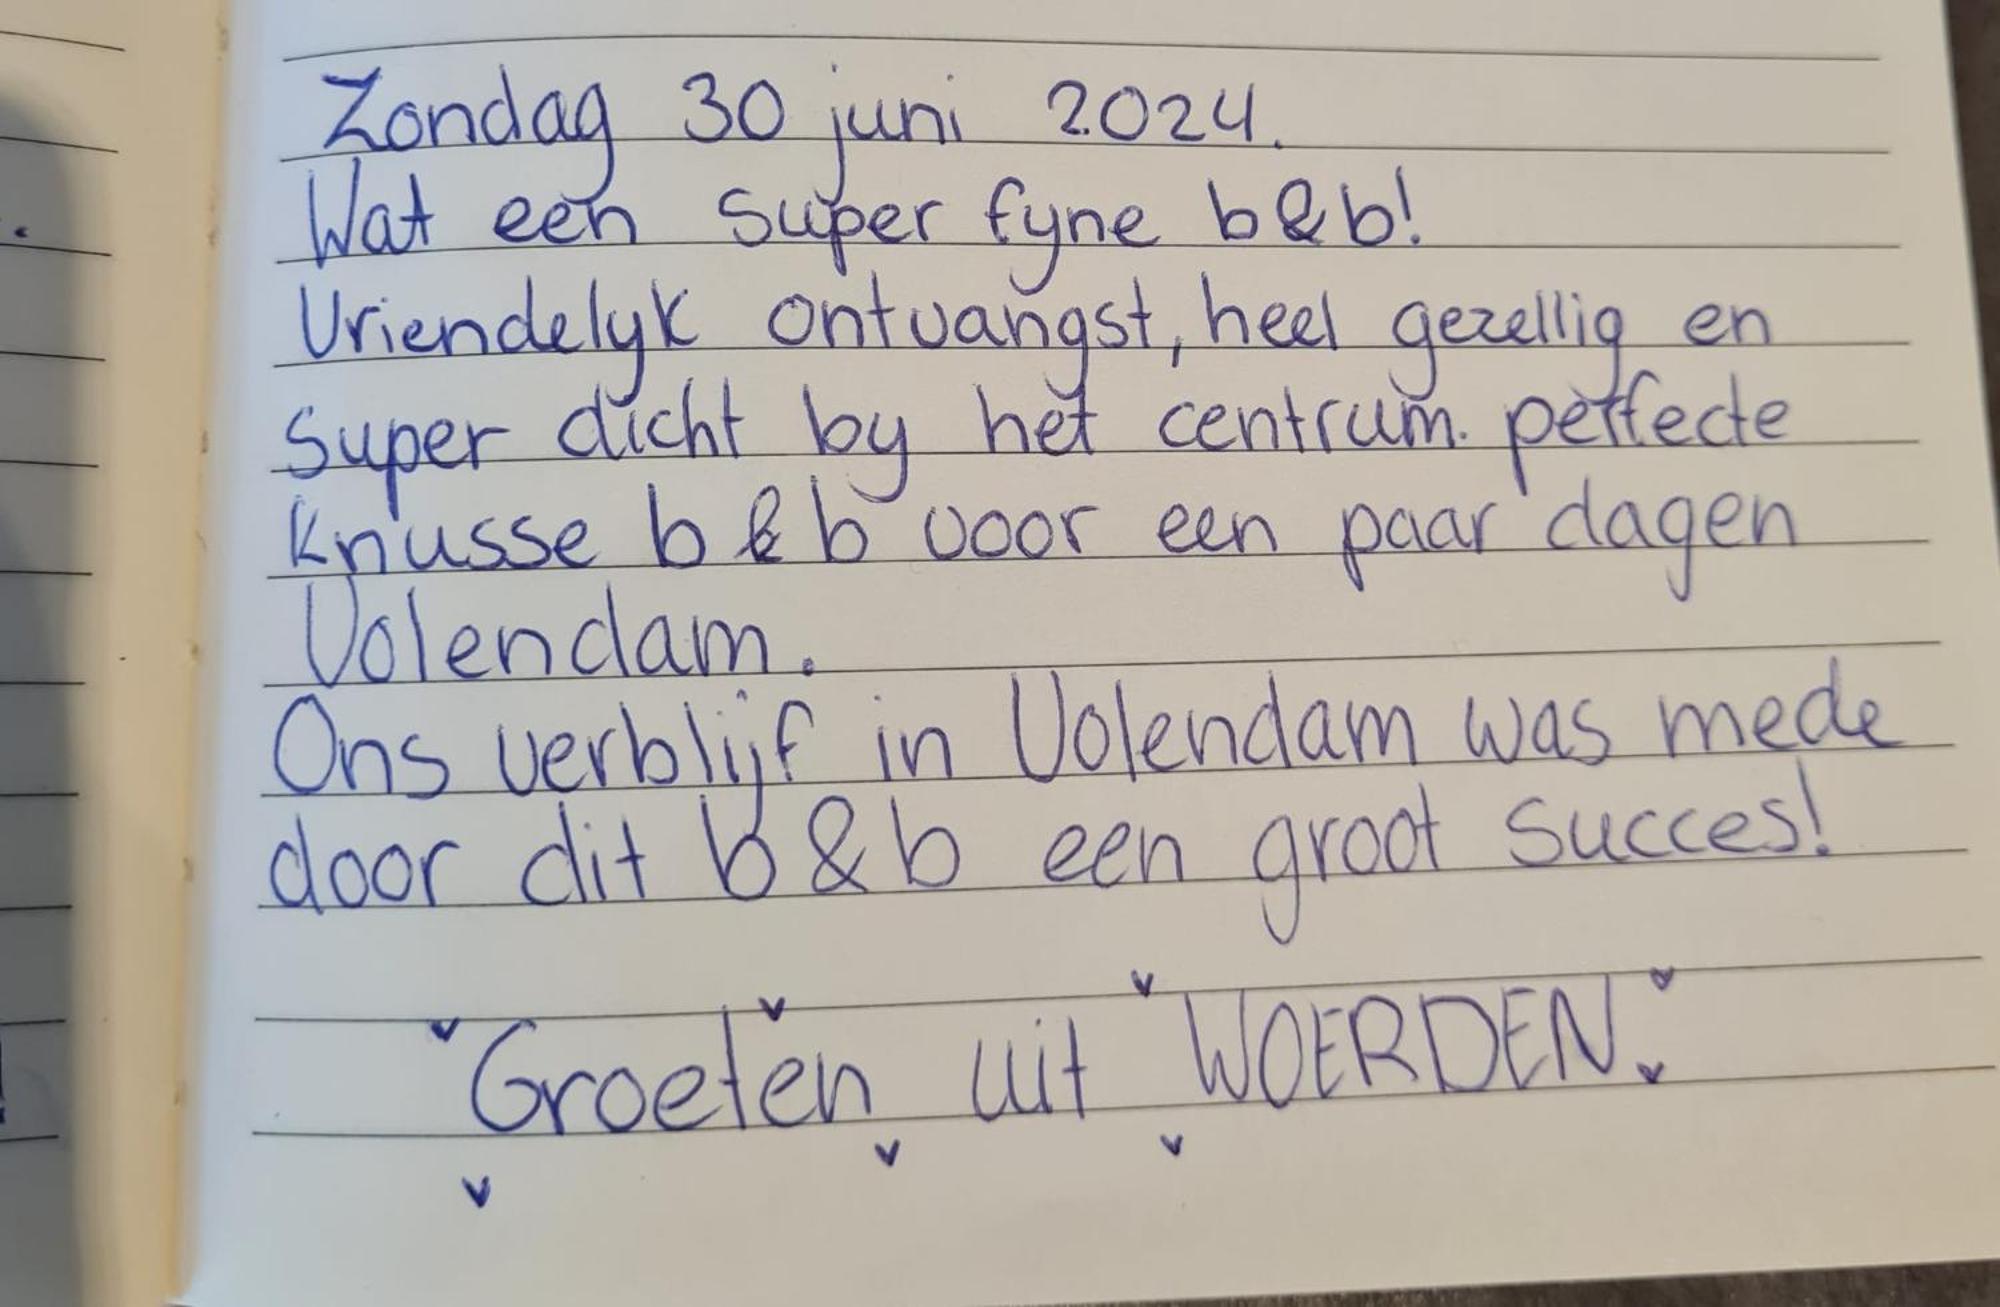 Zondag 30 juni 2024.
Wat een super fyne b&b!
Vriendelyk ontvangst, heel gezellig en
super dicht by het centrum. perfecte
knusse b&b voor een paar dagen
Volendam.
Ons verblijf in Volendam was mede
door dit b&b een groot succes!
Groeten uit WOERDEN.